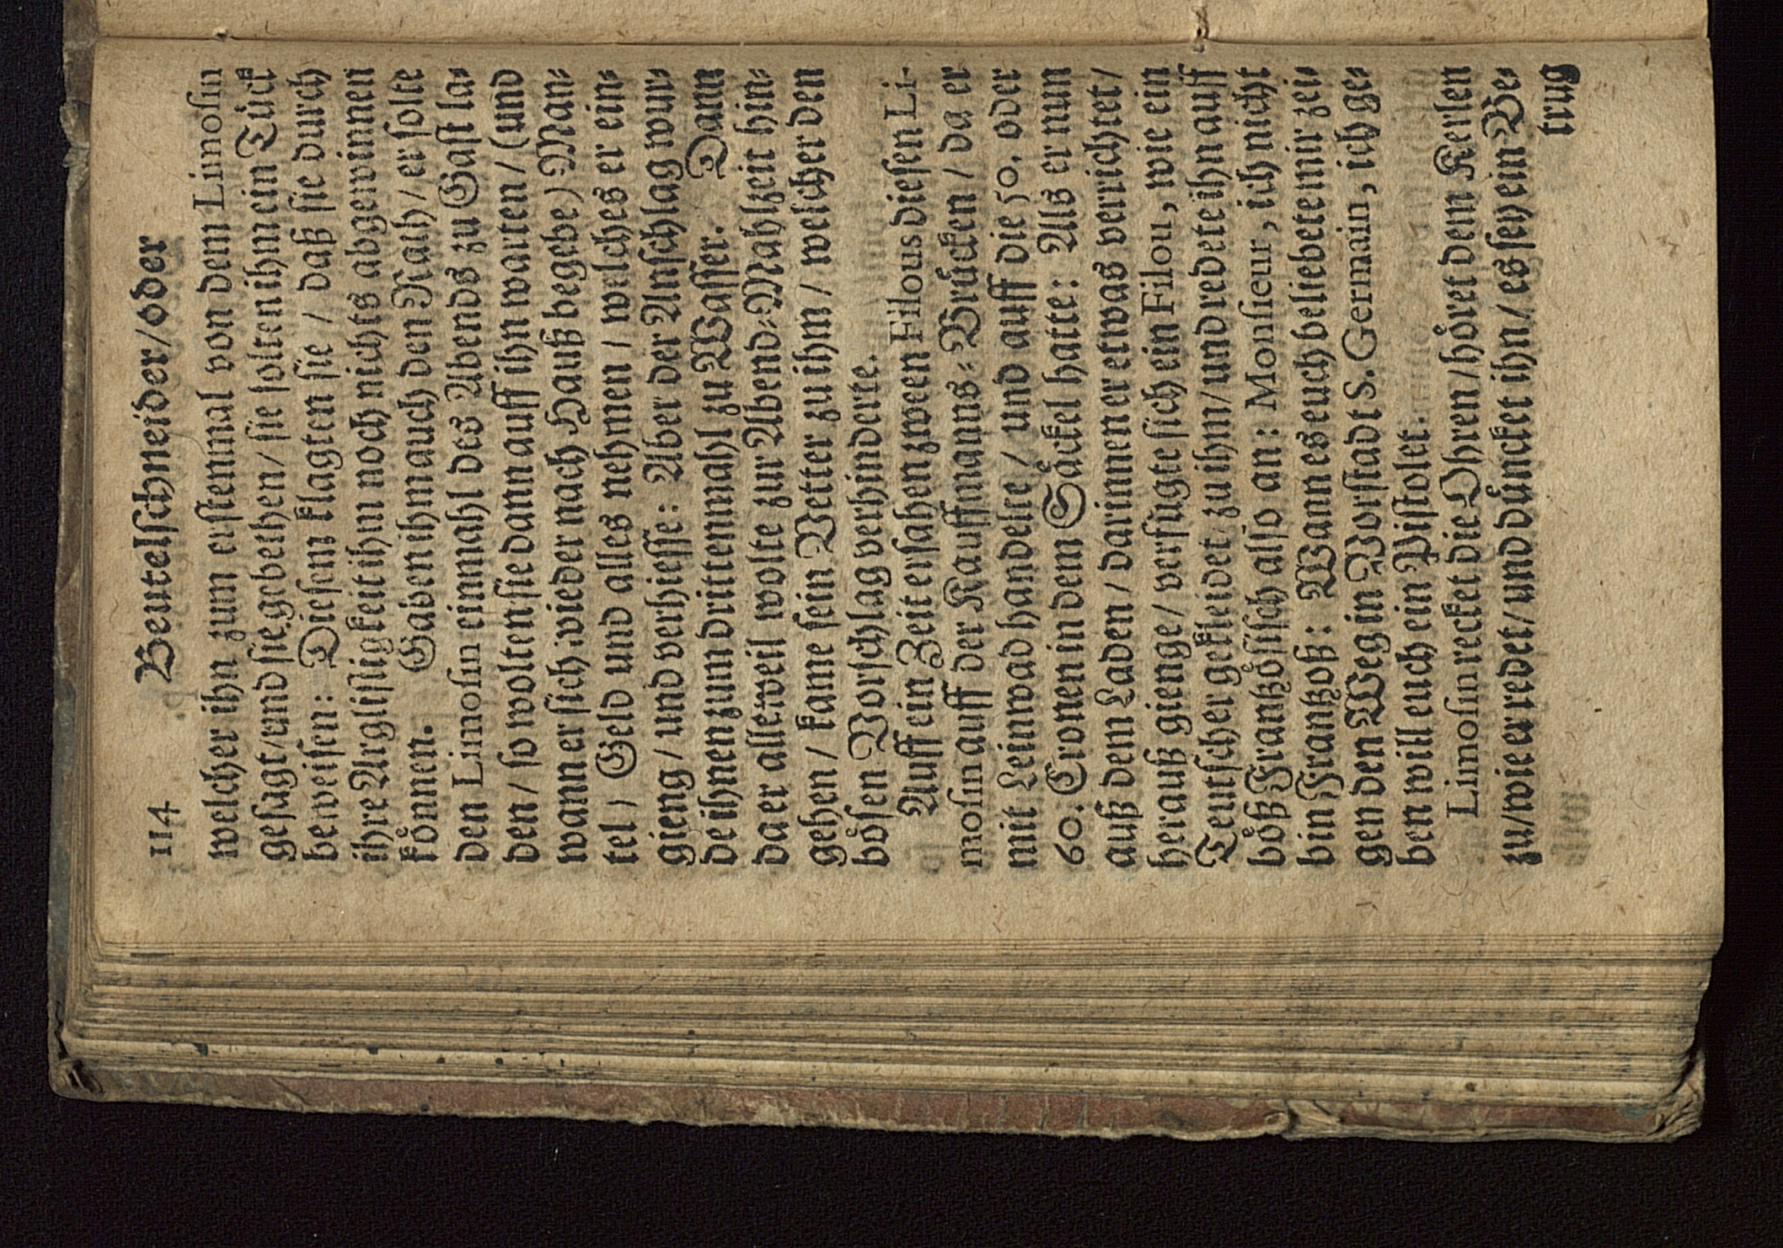 114 Beutelschneider/oder
welcher ihn zum erstenmal von dem Limosin
gesagt/und sie gebethen/ sie solten ihm ein Tück
beweisen: Diesem klagten sie / daß sie durch
ihre Arglistigkeit ihm noch nichts abgewinnen
können. Gaben ihm auch den Rath/ er solte
den Limosin einmahl des Abends zu Gast la⸗
den / so wolten sie dann auff ihn warten / (und
wann er sich wieder nach Hauß begebe) Man⸗
tel / Geld und alles nehmen / welches er ein⸗
gieng / und verhiesse: Aber der Anschlag wur⸗
de ihnen zum drittenmahl zu Wasser. Dann
da er alleweil wolte zur Abend⸗Mahlzeit hin⸗
gehen / kame sein Vetter zu ihm / welcher den
bösen Vorschlag verhinderte.
Auff ein Zeit ersahen zween Filous diesen Li-
mosin auff der Kauffmanns⸗Brücken / da er
mit Leinwad handelte / und auff die 50. oder
60. Cronen in dem Säckel hatte: Als er nun
auß dem Laden / darinnen er etwas verrichtet /
herauß gienge / verfügte sich ein Filou, wie ein
Teutscher gekleidet zu ihm/ und redete ihn auff
böß Frantzösisch also an: Monsieur, ich nicht
bin Frantzoß: Wann es euch beliebete mir zei⸗
gen den Weg in Vorstadt S. Germain, ich ge⸗
ben will euch ein Pistolet.
Limosin recket die Ohren / höret dem Kerlen
zu/wie er redet/ und düncket ihn / es sey ein Be⸗
trug